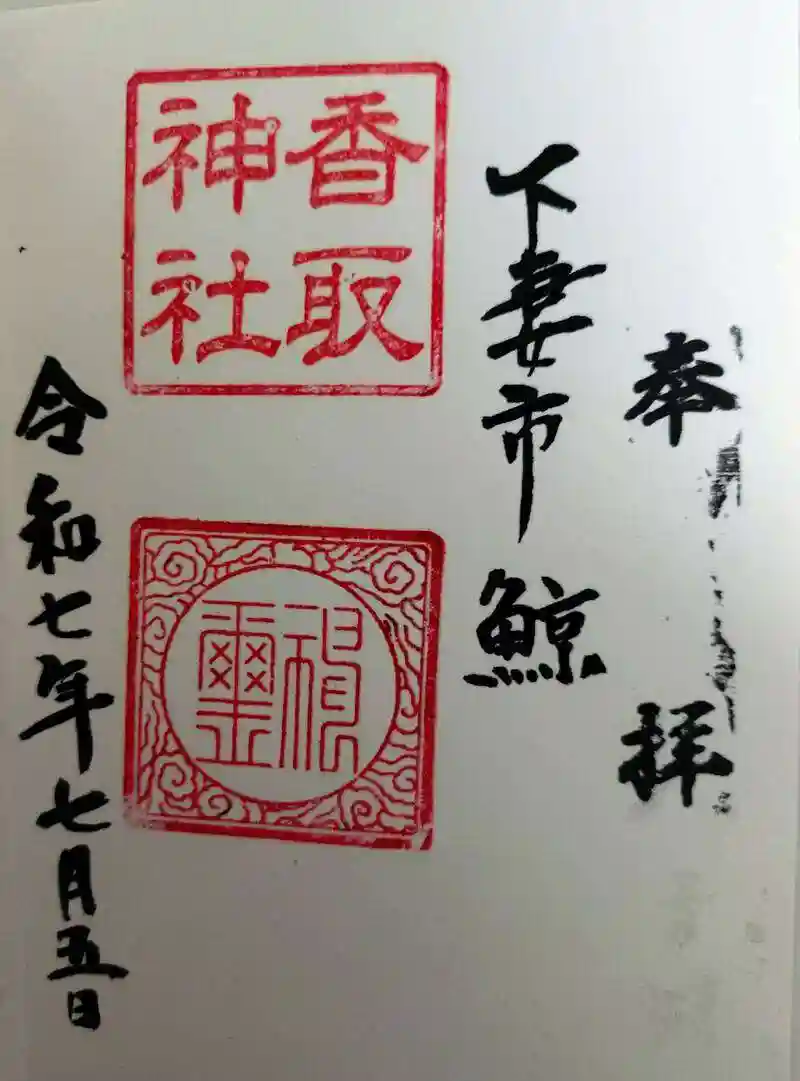 奉拝
下妻市鯨
香取
神社
令和七年七月五日